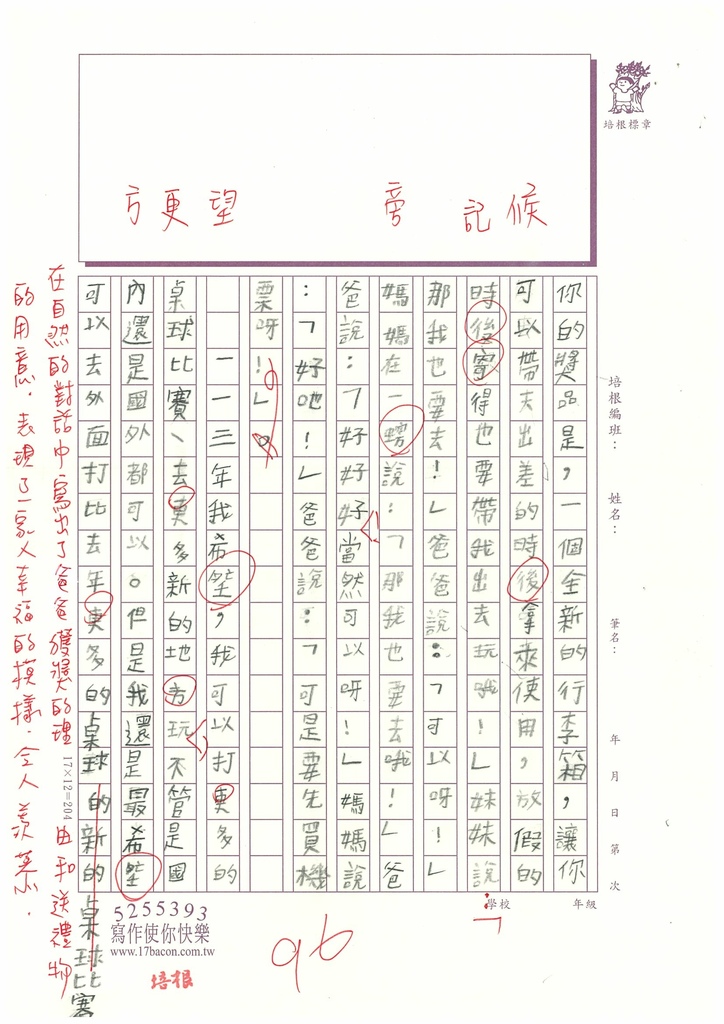 培根標章
候
記
旁
望
更
方
你的獎品是，一個全新的行李箱，讓你
可以帶去出差的時後拿來使用，放假的
時後寧得也要帶我出去玩哦！」妹妹說
：「
那我也要去！」爸爸說：「可以呀！」
媽媽在一螃說：「那我也要去哦！」爸
爸說：「好好好當然可以呀！」媽媽說
：「好吧！」爸爸說：「可是要先買機
票呀！」。
一一三年我希望，我可以打更多的
桌球比賽、去更多新的地方玩不管是國
內還是國外都可以。但是我還是最希望
可以去外面打比去年更多的桌球的新的
桌球比賽
在自然的對話中寫出了爸爸獲獎的理由和送禮物
的用意。表現了一家人幸福的模樣。令人羨慕。
96
17×12=204
培根編班：
姓名：
筆名：
年 月 日 第 次
學校 年級
5255393
寫作使你快樂
www.17bacon.com.tw
培根